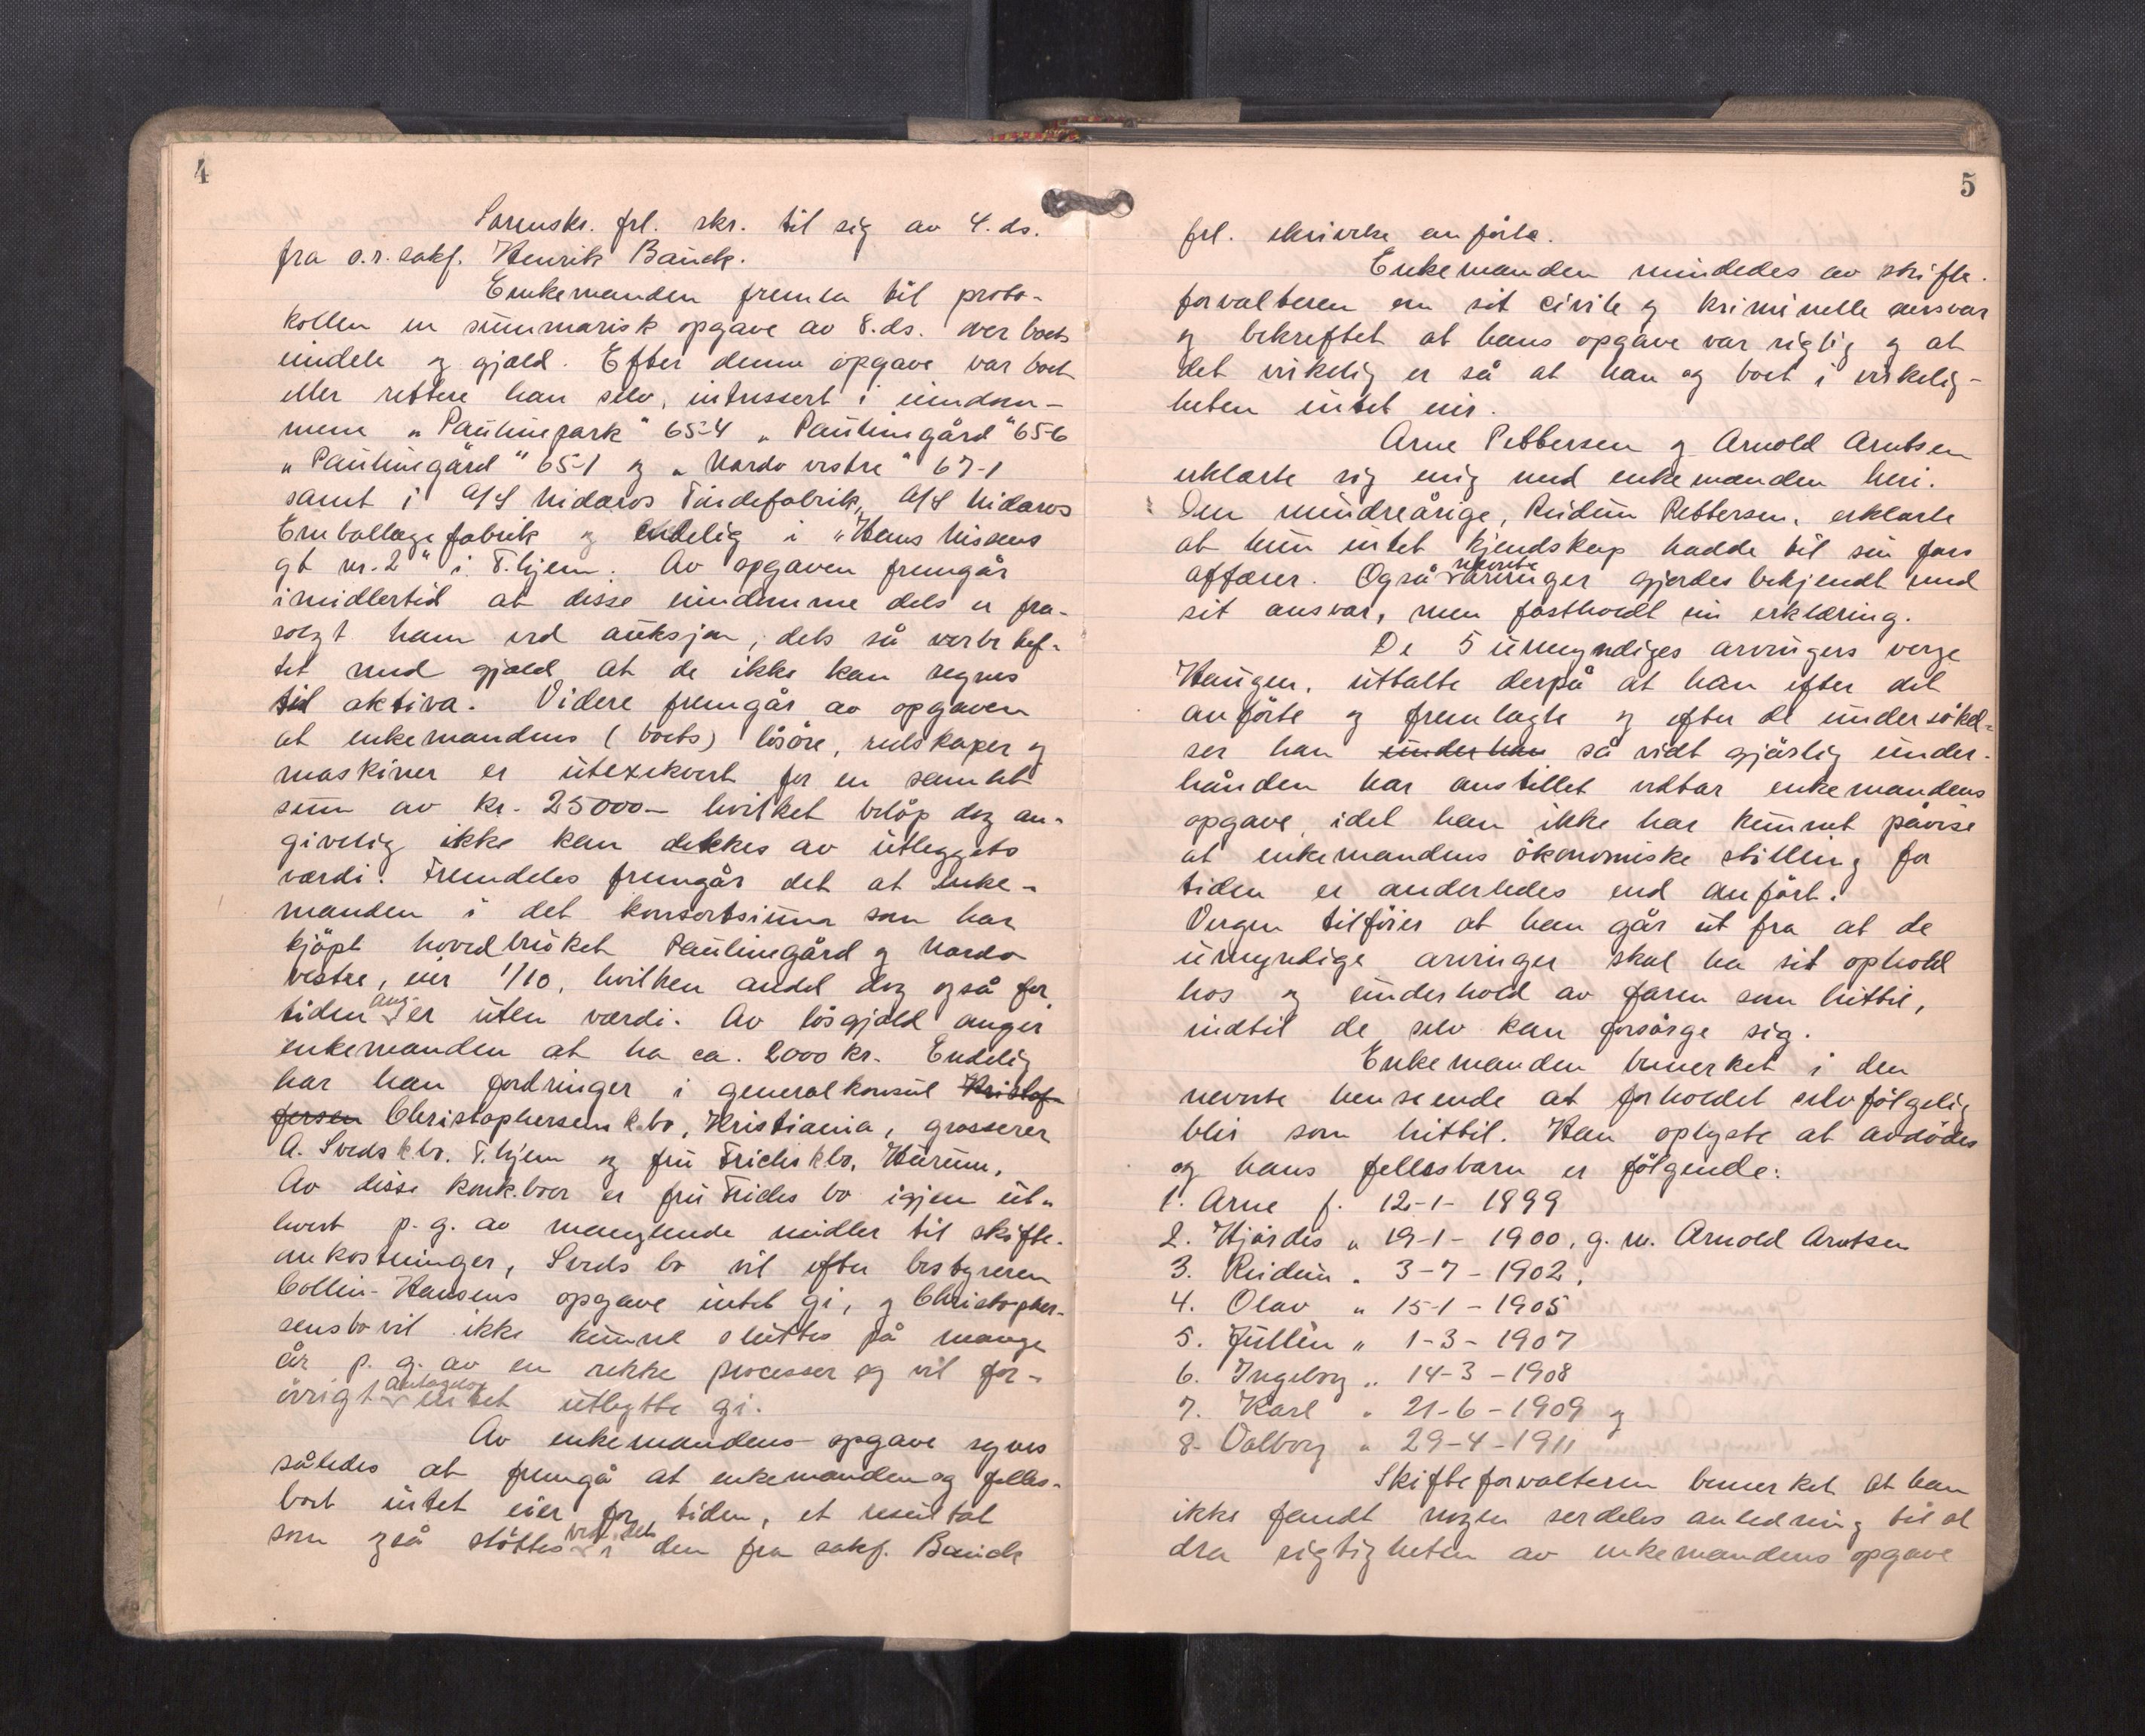 4
Sorenskr. frl. skr. til sig av 4. ds.
fra o.r.sakf. Henrik Bauck.
Enkemanden fremla til proto-
kollen en summarisk opgave av 8. ds. over boets
eiendele og gjæld. Efter denne opgave var boet
eller rettere han selv, intressert i eiendom-
mene „Paulinepark" 65-4 „Paulinegård" 65-6
„Paulinegård" 65-1 og „Nardo vestre" 67-1
samt i A/S Nidaros Töndefabrik, A/S Nidaros
Emballagefabrik og endelig i „Hans Nissens
gt nr. 2" i T.hjem. Av opgaven fremgår
imidlertid at disse eiendomme dels er fra-
solgt ham ved auksjon, dels så overbehef-
tet med gjæld at de ikke kan regnes
til aktiva. Videre fremgår av opgaven
at enkemandens (boets) lösöre, redskaper og
maskiner er utexekvert for en samlet
sum av kr. 25000- hvilket belöp dog an-
givelig ikke kan dekkes av utleggets
værdi. Fremdeles fremgår det at enke-
manden i det konsortsium som har
kjöpt hovedbruket Paulinegård og Nardo
vestre, eier 1/10, hvilken andel dog også for
tiden ang. er uten værdi. Av lösgjæld anger
enkemanden at ha ca. 2000 kr. Endelig
har han fordringer i generalkonsul Kristof-
fersen Christophersens k.bo, Kristiania, grosserer
A. Sveds k.bo. T.hjem og fru Frichs k.bo, Hurum.
Av disse konk.boer er fru Frichs bo igjen ut-
levert p. g. av manglende midler til skifte-
omkostninger, Sveds bo vil efter bestyreren
Collin-Hansens opgave intet gi, og Christopher-
sens bo vil ikke kunne sluttes på mange
år p. g. av en rekke processer og vil for-
övrigt antagelig intet utbytte gi.
Av enkemandens opgave synes
således at fremgå at enkemanden og felles-
boet intet eier for tiden, et resultat
som også stöttes ved det i den fra sakf. Bauck
5
frl. skrivelse anförte.
Enkemanden mindedes av skifte-
forvalteren om sit civile og kriminelle ansvar
og bekreftet at hans opgave var rigtig og at
det virkelig er så at han og boet i virkelig-
heten intet eier.
Arne Pettersen og Arnold Arntsen
erklærte sig enig med enkemanden heri.
Den mindreårige, Reidun Pettersen, erklærte
at hun intet kjendskap hadde til sin fars
affærer. Også nevnte arvinger gjordes bekjendt med
sit ansvar, men fastholdt sin erklæring.
De 5 umyndiges arvingers verge
Haugen, uttalte derpå at han efter det
anförte og fremlagte og efter de undersökel-
ser han underhan så vidt gjörlig under-
hånden har anstillet vedtar enkemandens
opgave, idet han ikke har kunnet påvise
at enkemandens ökonomiske stilling for
tiden er anderledes end anfört.
Vergen tilföier at han går ut fra at de
umyndige arvinger skal ha sit ophold
hos og underhold av faren som hittil,
indtil de selv kan forsörge sig.
Enkemanden bemerket i den
nevnte henseende at forholdet selvfölgelig
blir som hittil. Han oplyste at avdödes
og hans fellesbarn er fölgende:
1. Arne f. 12-1-1899
2. Hjördis „ 19-1-1900, g. m. Arnold Arntsen
3. Reidun „ 3-7-1902,
4. Olav „ 15-1-1905
5. Jullin „ 1-3-1907
6. Ingeborg „ 14-3-1908
7. Karl „ 21-6-1909 og
8. Valborg „ 29-4-1911
Skifteforvalteren bemerket at han
ikke fandt nogen serdeles anledning til at
dra rigtigheten av enkemandens opgave